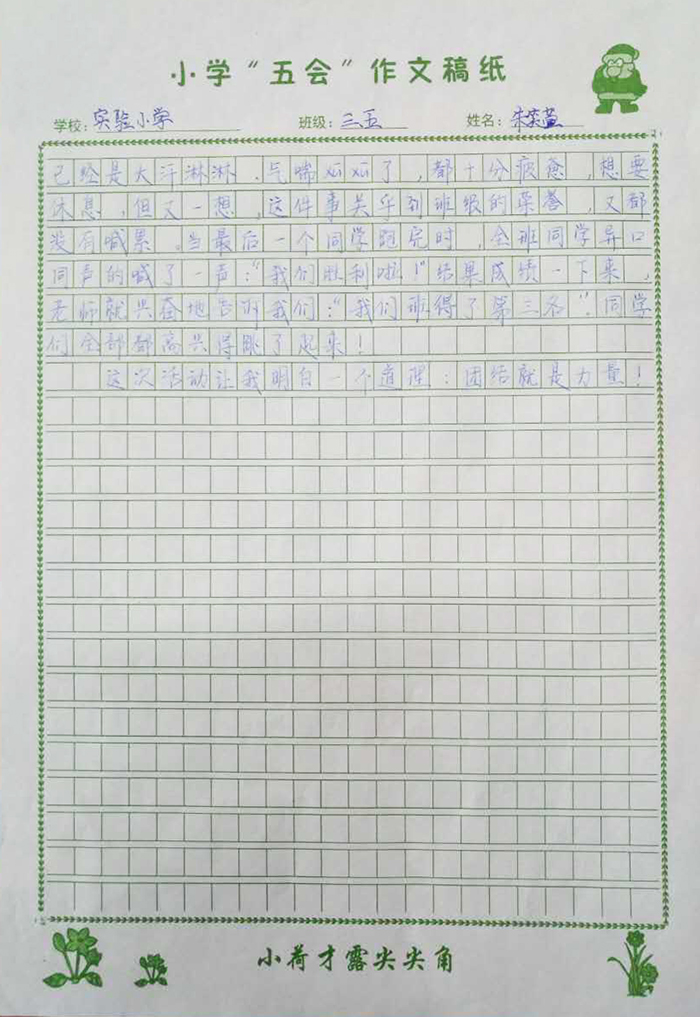 小学“五会”作文稿纸
学校：实验小学 班级：三五 姓名：朱奕萱
已经是大汗淋淋、气喘吁吁了，都十分疲惫，想要
休息，但又一想，这件事关乎到班级的荣誉，又都
没有喊累。当最后一个同学跑完时，全班同学异口
同声的喊了一声：“我们胜利啦！”结果成绩一下来，
老师就兴奋地告诉我们：“我们班得了第三名”。同学
们全部都高兴得跳了起来！
这次活动让我明白一个道理：团结就是力量！
小荷才露尖尖角